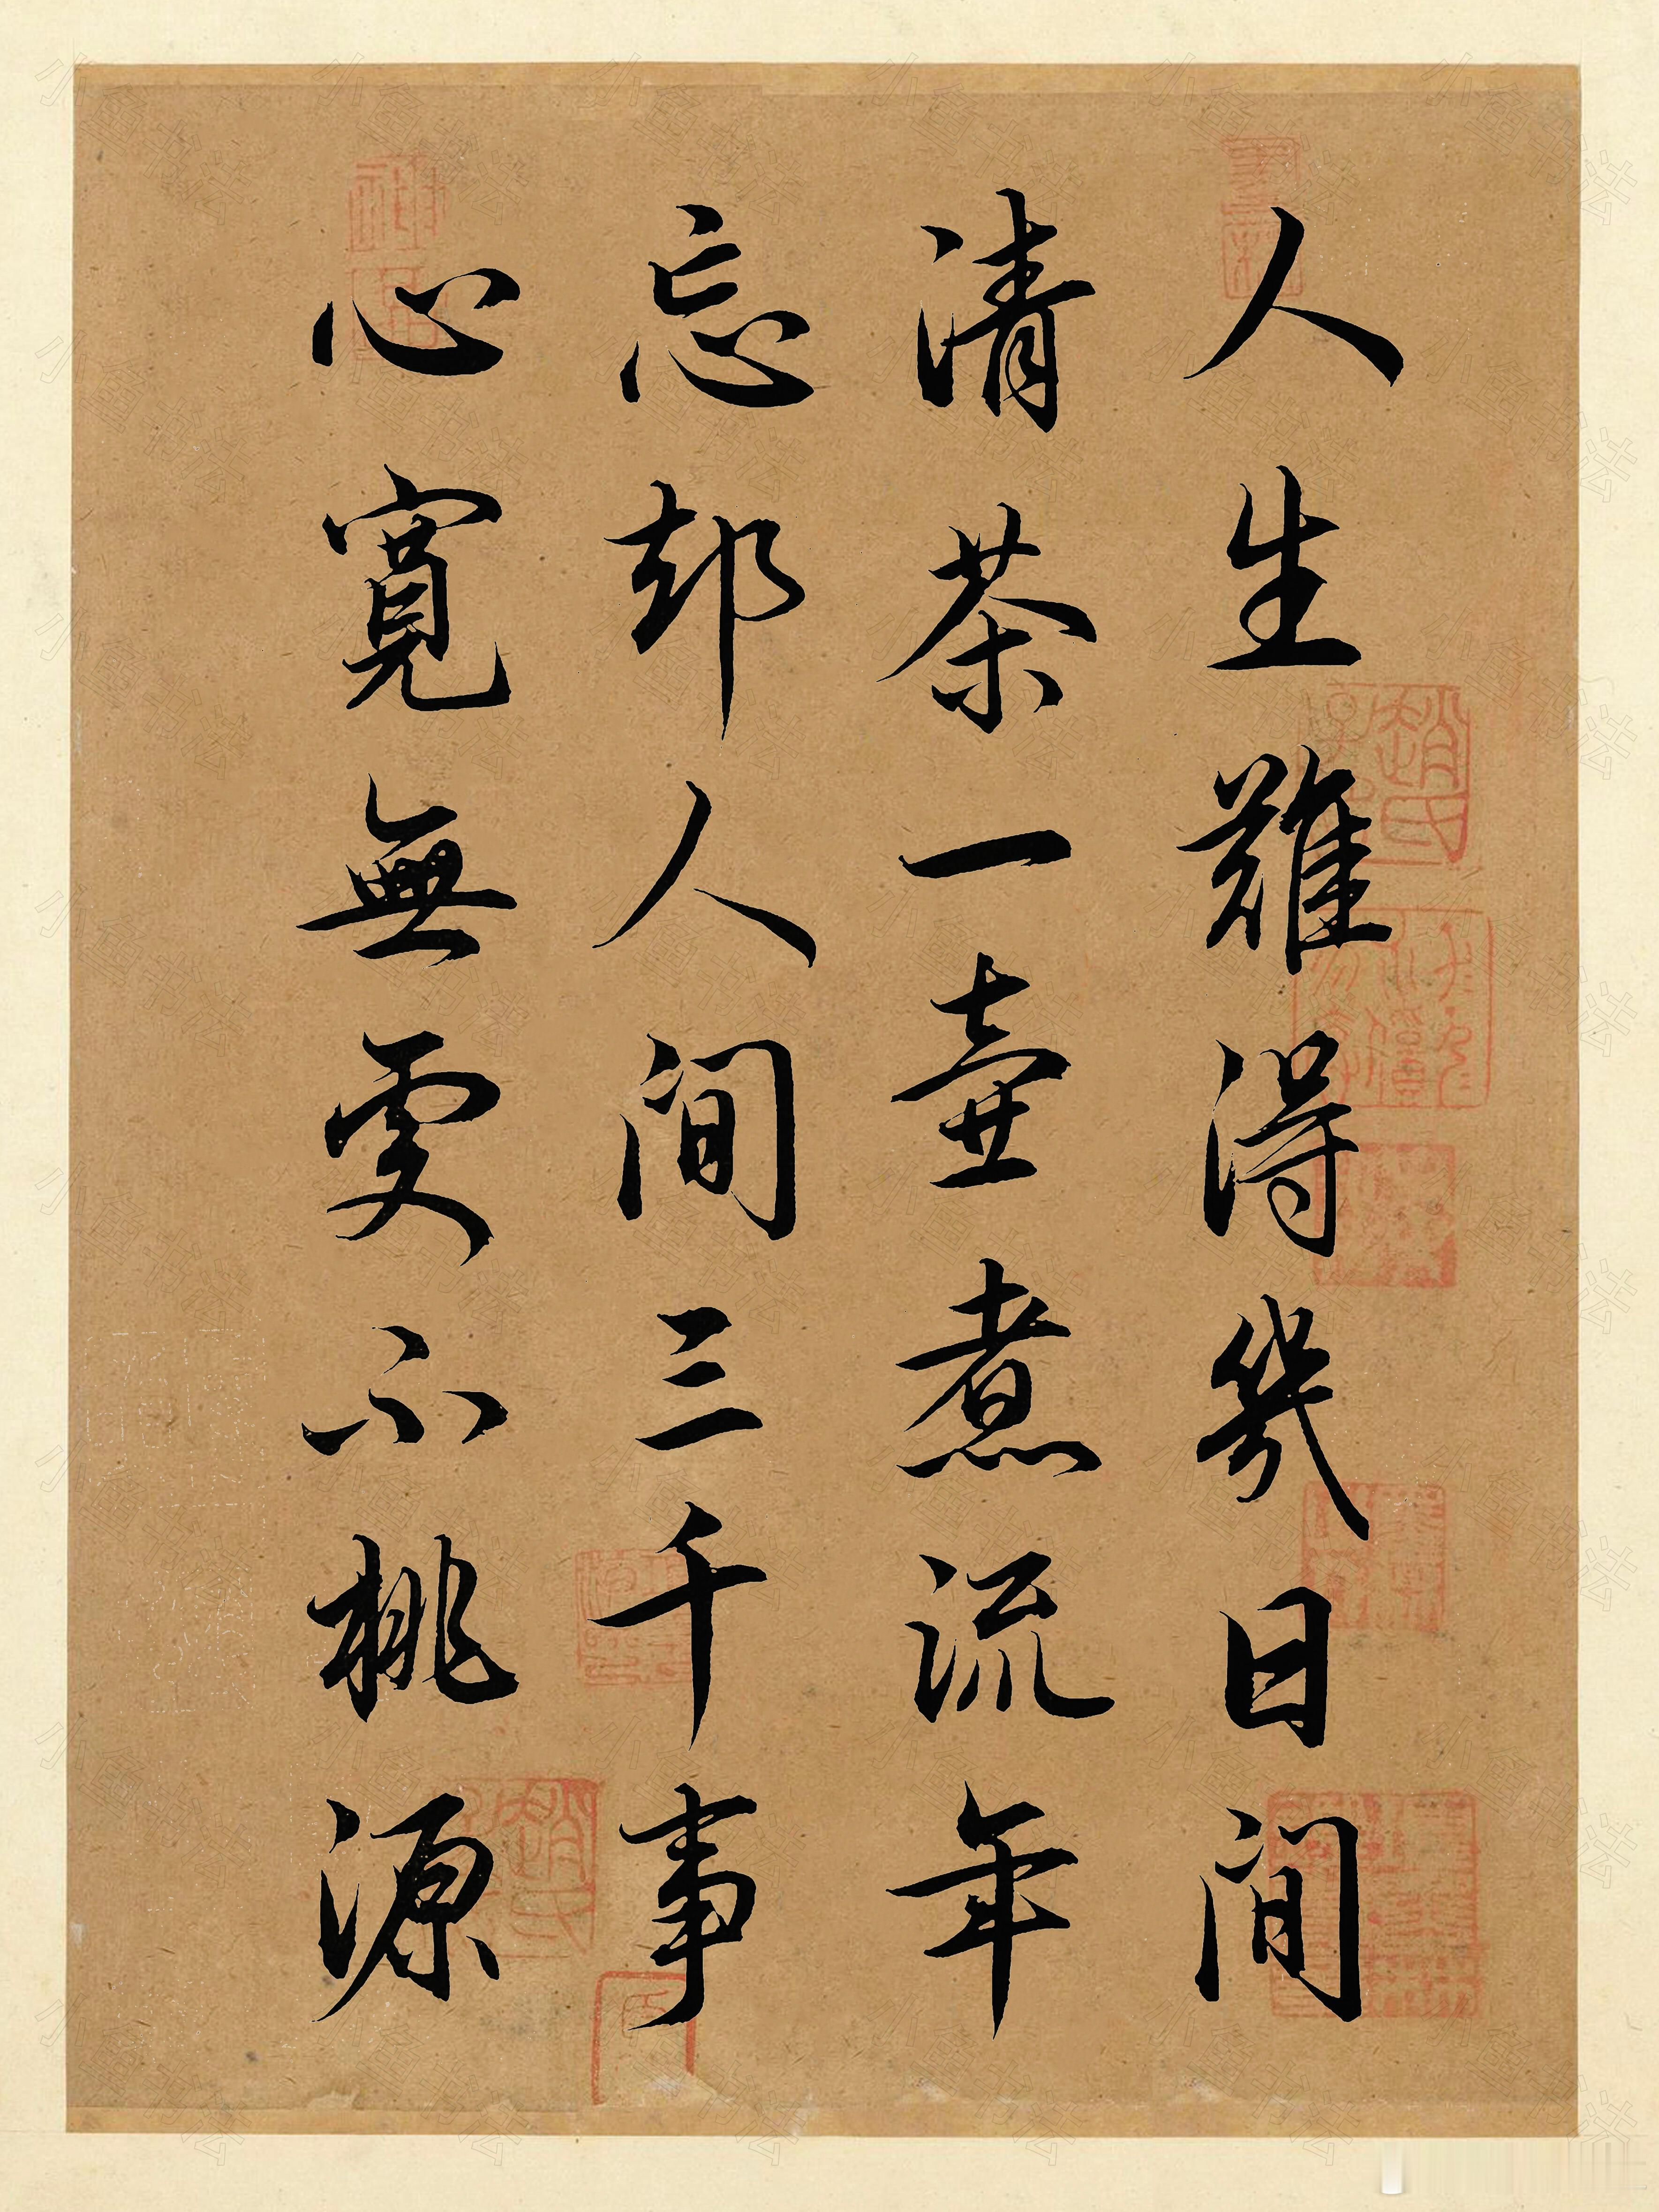 人生難得幾日間
清茶一壺煮流年
忘却人間三千事
心寬無處不桃源
小鱼书法